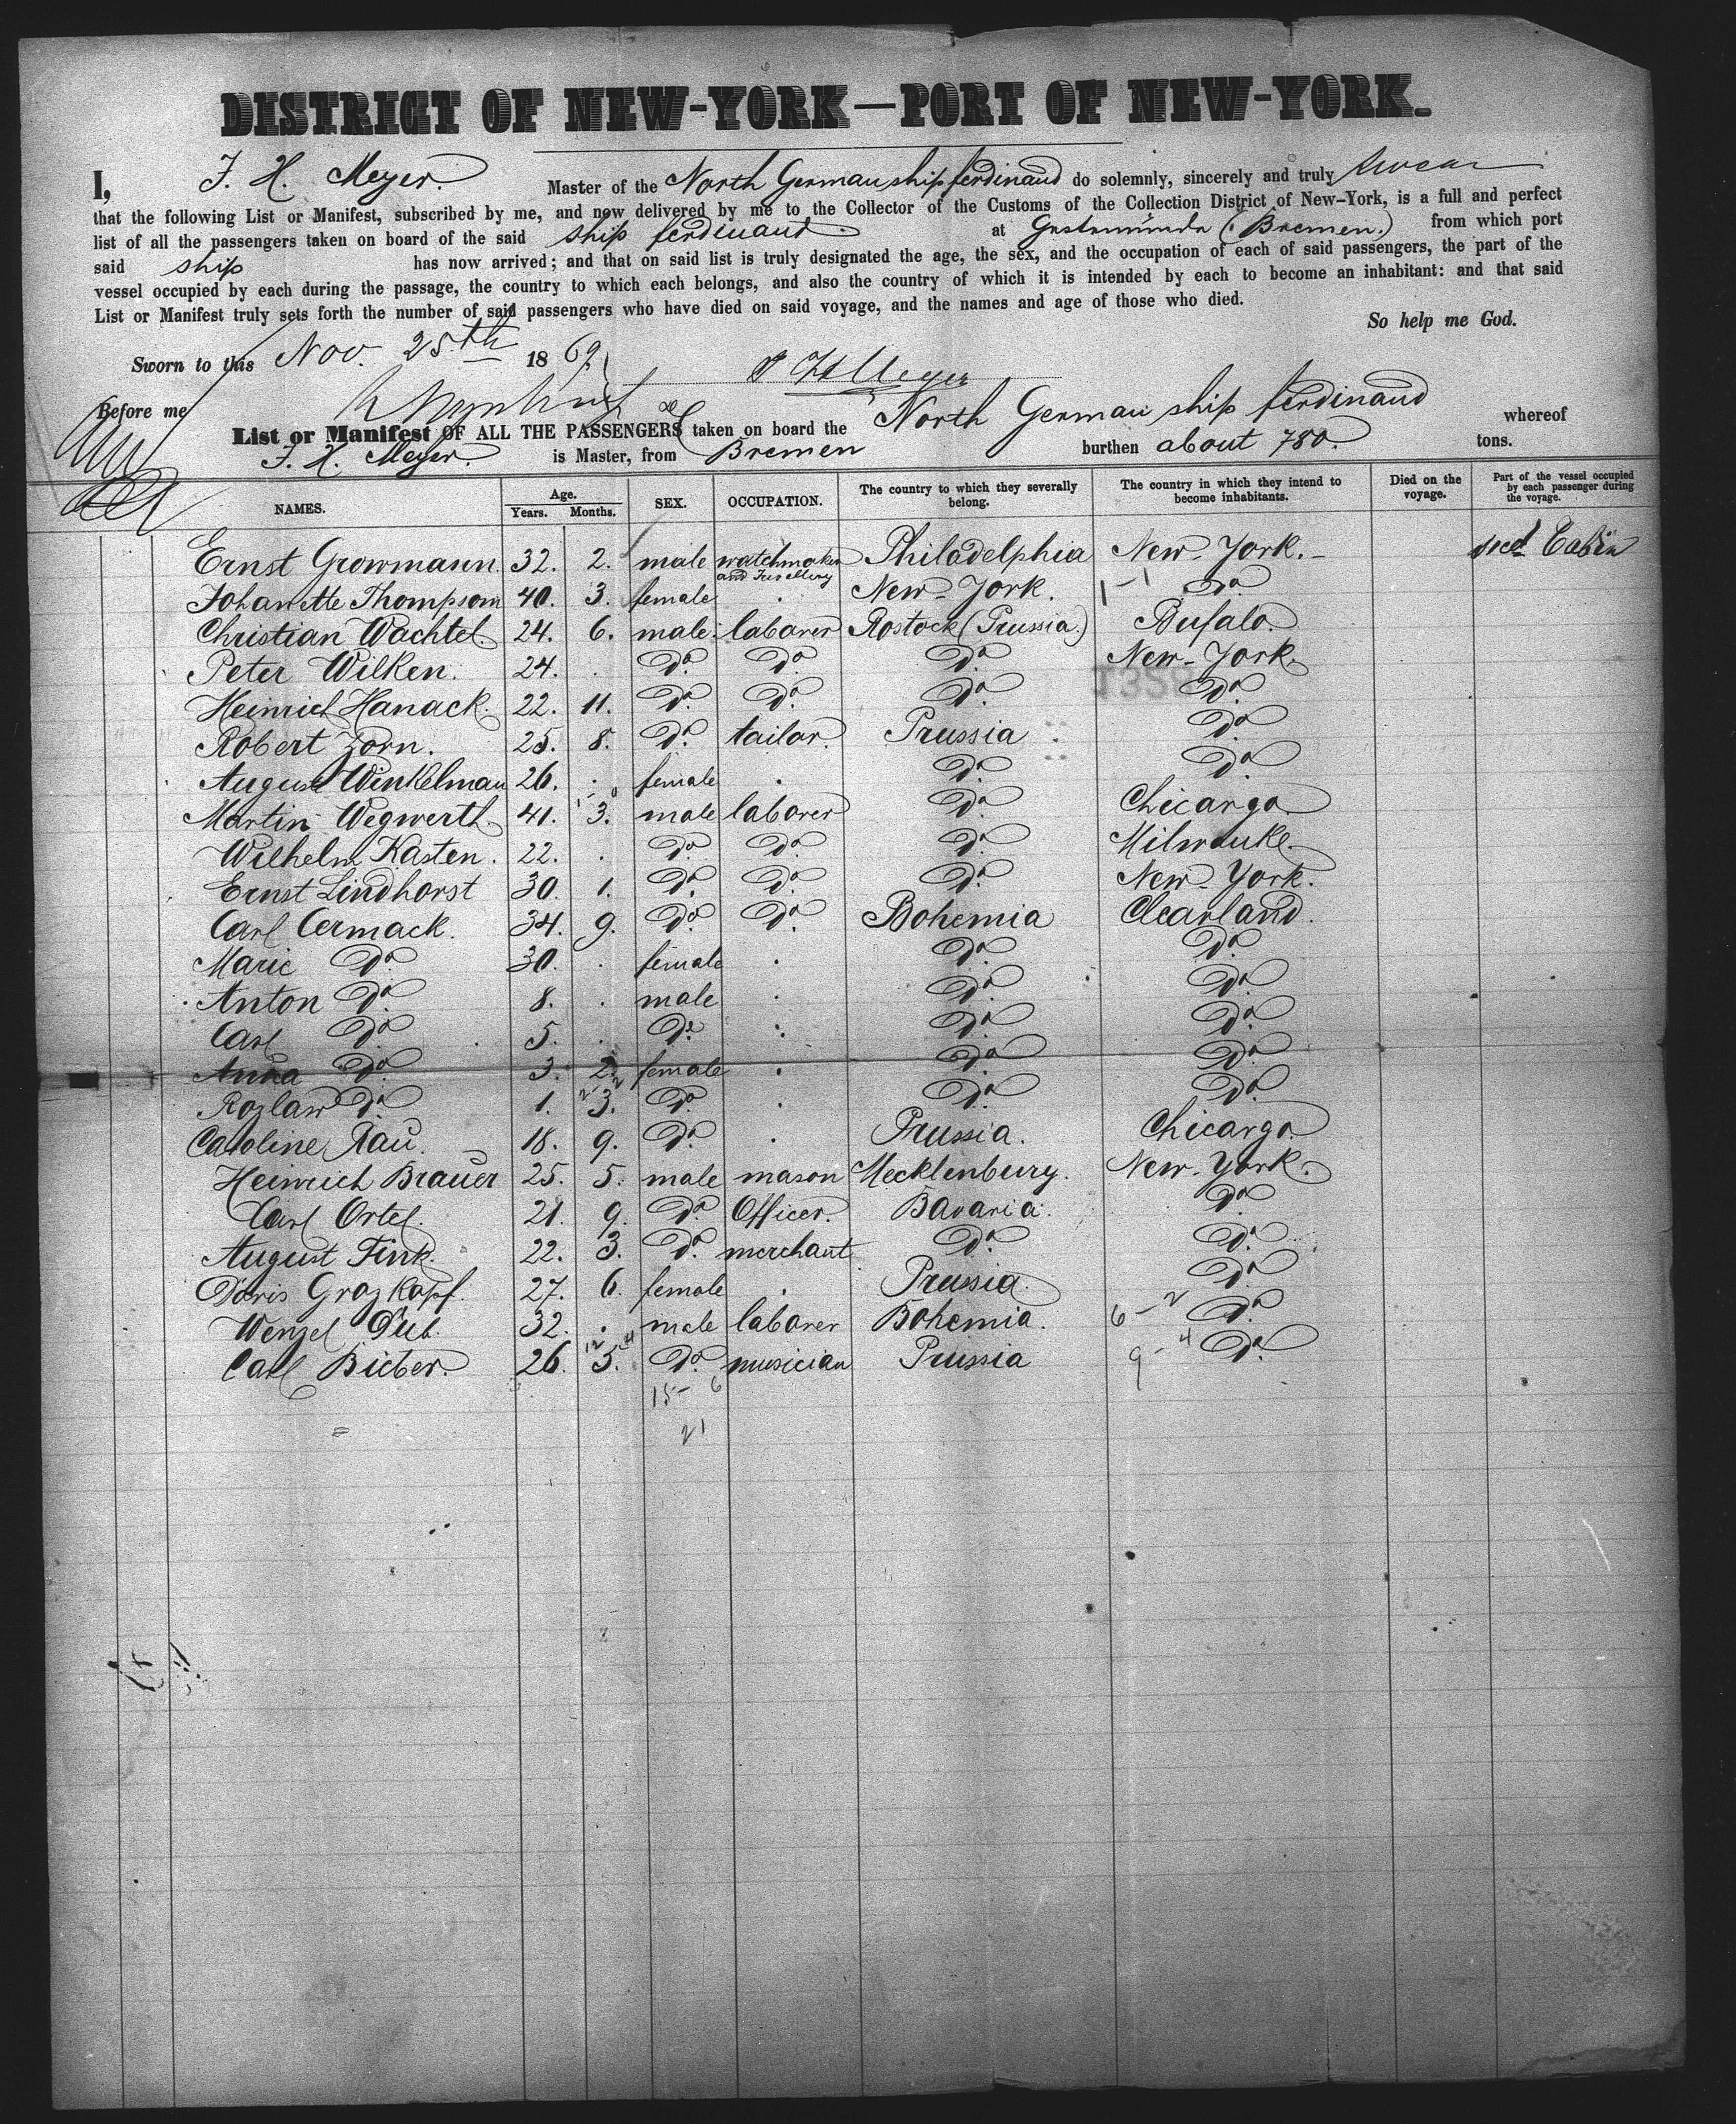 DISTRICT OF NEW-YORK—PORT OF NEW-YORK.
I, J. H. Meyer. Master of the North German ship ferdinand do solemnly, sincerely and truly swear
that the following List or Manifest, subscribed by me, and now delivered by me to the Collector of the Customs of the Collection District of New-York, is a full and perfect
list of all the passengers taken on board of the said ship ferdinand. at (Bremen.) from which port
said ship has now arrived; and that on said list is truly designated the age, the sex, and the occupation of each of said passengers, the part of the
vessel occupied by each during the passage, the country to which each belongs, and also the country of which it is intended by each to become an inhabitant: and that said
List or Manifest truly sets forth the number of said passengers who have died on said voyage, and the names and age of those who died.
So help me God.
Sworn to this Nov. 25th 1869 J H Meyer
Before me
List or Manifest OF ALL THE PASSENGERS taken on board the North German ship ferdinand whereof
J. H. Meyer. is Master, from Bremen burthen about 780. tons.
NAMES. Age. Years. Months. SEX. OCCUPATION. The country to which they severally belong. The country in which they intend to become inhabitants. Died on the voyage. Part of the vessel occupied by each passenger during the voyage.
Ernst Growmann 32. 2. male watchmaker and Philadelphia New-York. Cabin
Johanette Thompsom 40. 3. female New-York. 1-1 Do
Christian Wachtel 24. 6. male laborer Rostock (Prussia.) Bufalo.
Peter Wilken. 24. Do Do Do New-York.
Heinrich Hanack. 22. 11. Do Do Do Do
Robert Zorn. 25. 8. Do tailor. Prussia Do
August Winkelman 26. female Do Do
Martin Wegwerth. 41. 3. male laborer Do Chicargo
Wilhelm Kasten. 22. Do Do Do Milwauke.
Ernst Lindhorst 30. 1. Do Do Do New-York.
Carl Cermack. 34. 9. Do Do Bohemia Clearland.
Marie Do 30. female Do Do
Anton Do 8. male Do Do
Carl Do 5. Do Do Do
Anna Do 3. 2. female Do Do
Rozlaw Do 1. 3. Do Do Do
Caroline Rau. 18. 9. Do Prussia. Chicargo.
Heinrich Brauer 25. 5. male mason Mecklenburg. New-York.
Carl Ortel. 21. 9. Do Officer. Bavaria. Do
August Fink. 22. 3. Do merchant Do Do
Doris Grazkopf. 27. 6. female Prussia. Do
Wenzel Dub. 32. male laborer Bohemia. 6-2 Do
Carl Bieber. 26. 5. Do musician Prussia 9-4 Do
15-6
21